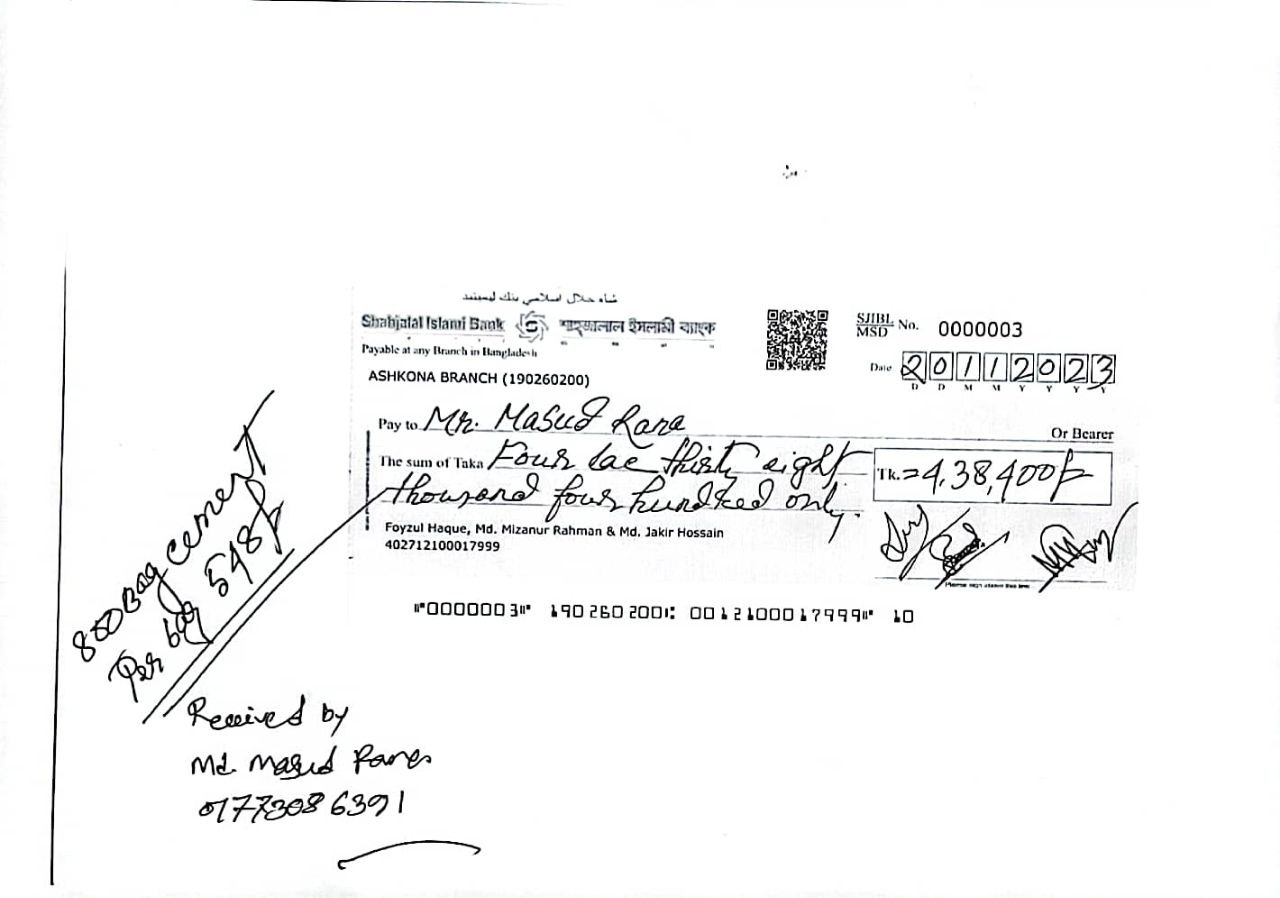 شاه جلال اسلامي بنك ليميتد
Shahjalal Islami Bank শাহ্‌জালাল ইসলামী ব্যাংক
Payable at any Branch in Bangladesh
ASHKONA BRANCH (190260200)
SJIBL
MSD No. 0000003
Date 20112023
D D M M Y Y Y Y
Pay to Mr. Masud Rana Or Bearer
The sum of Taka Four lac thirty eight
thousand four hundred only.
Tk. =4,38,400/-
Foyzul Haque, Md. Mizanur Rahman & Md. Jakir Hossain
402712100017999
Please sign above this line
⑈0000003⑈ 190260200⑆ 0012100017999⑈ 10
800 Bag cement
Per bag 548/-
Received by
Md. Masud Rana
01773086391